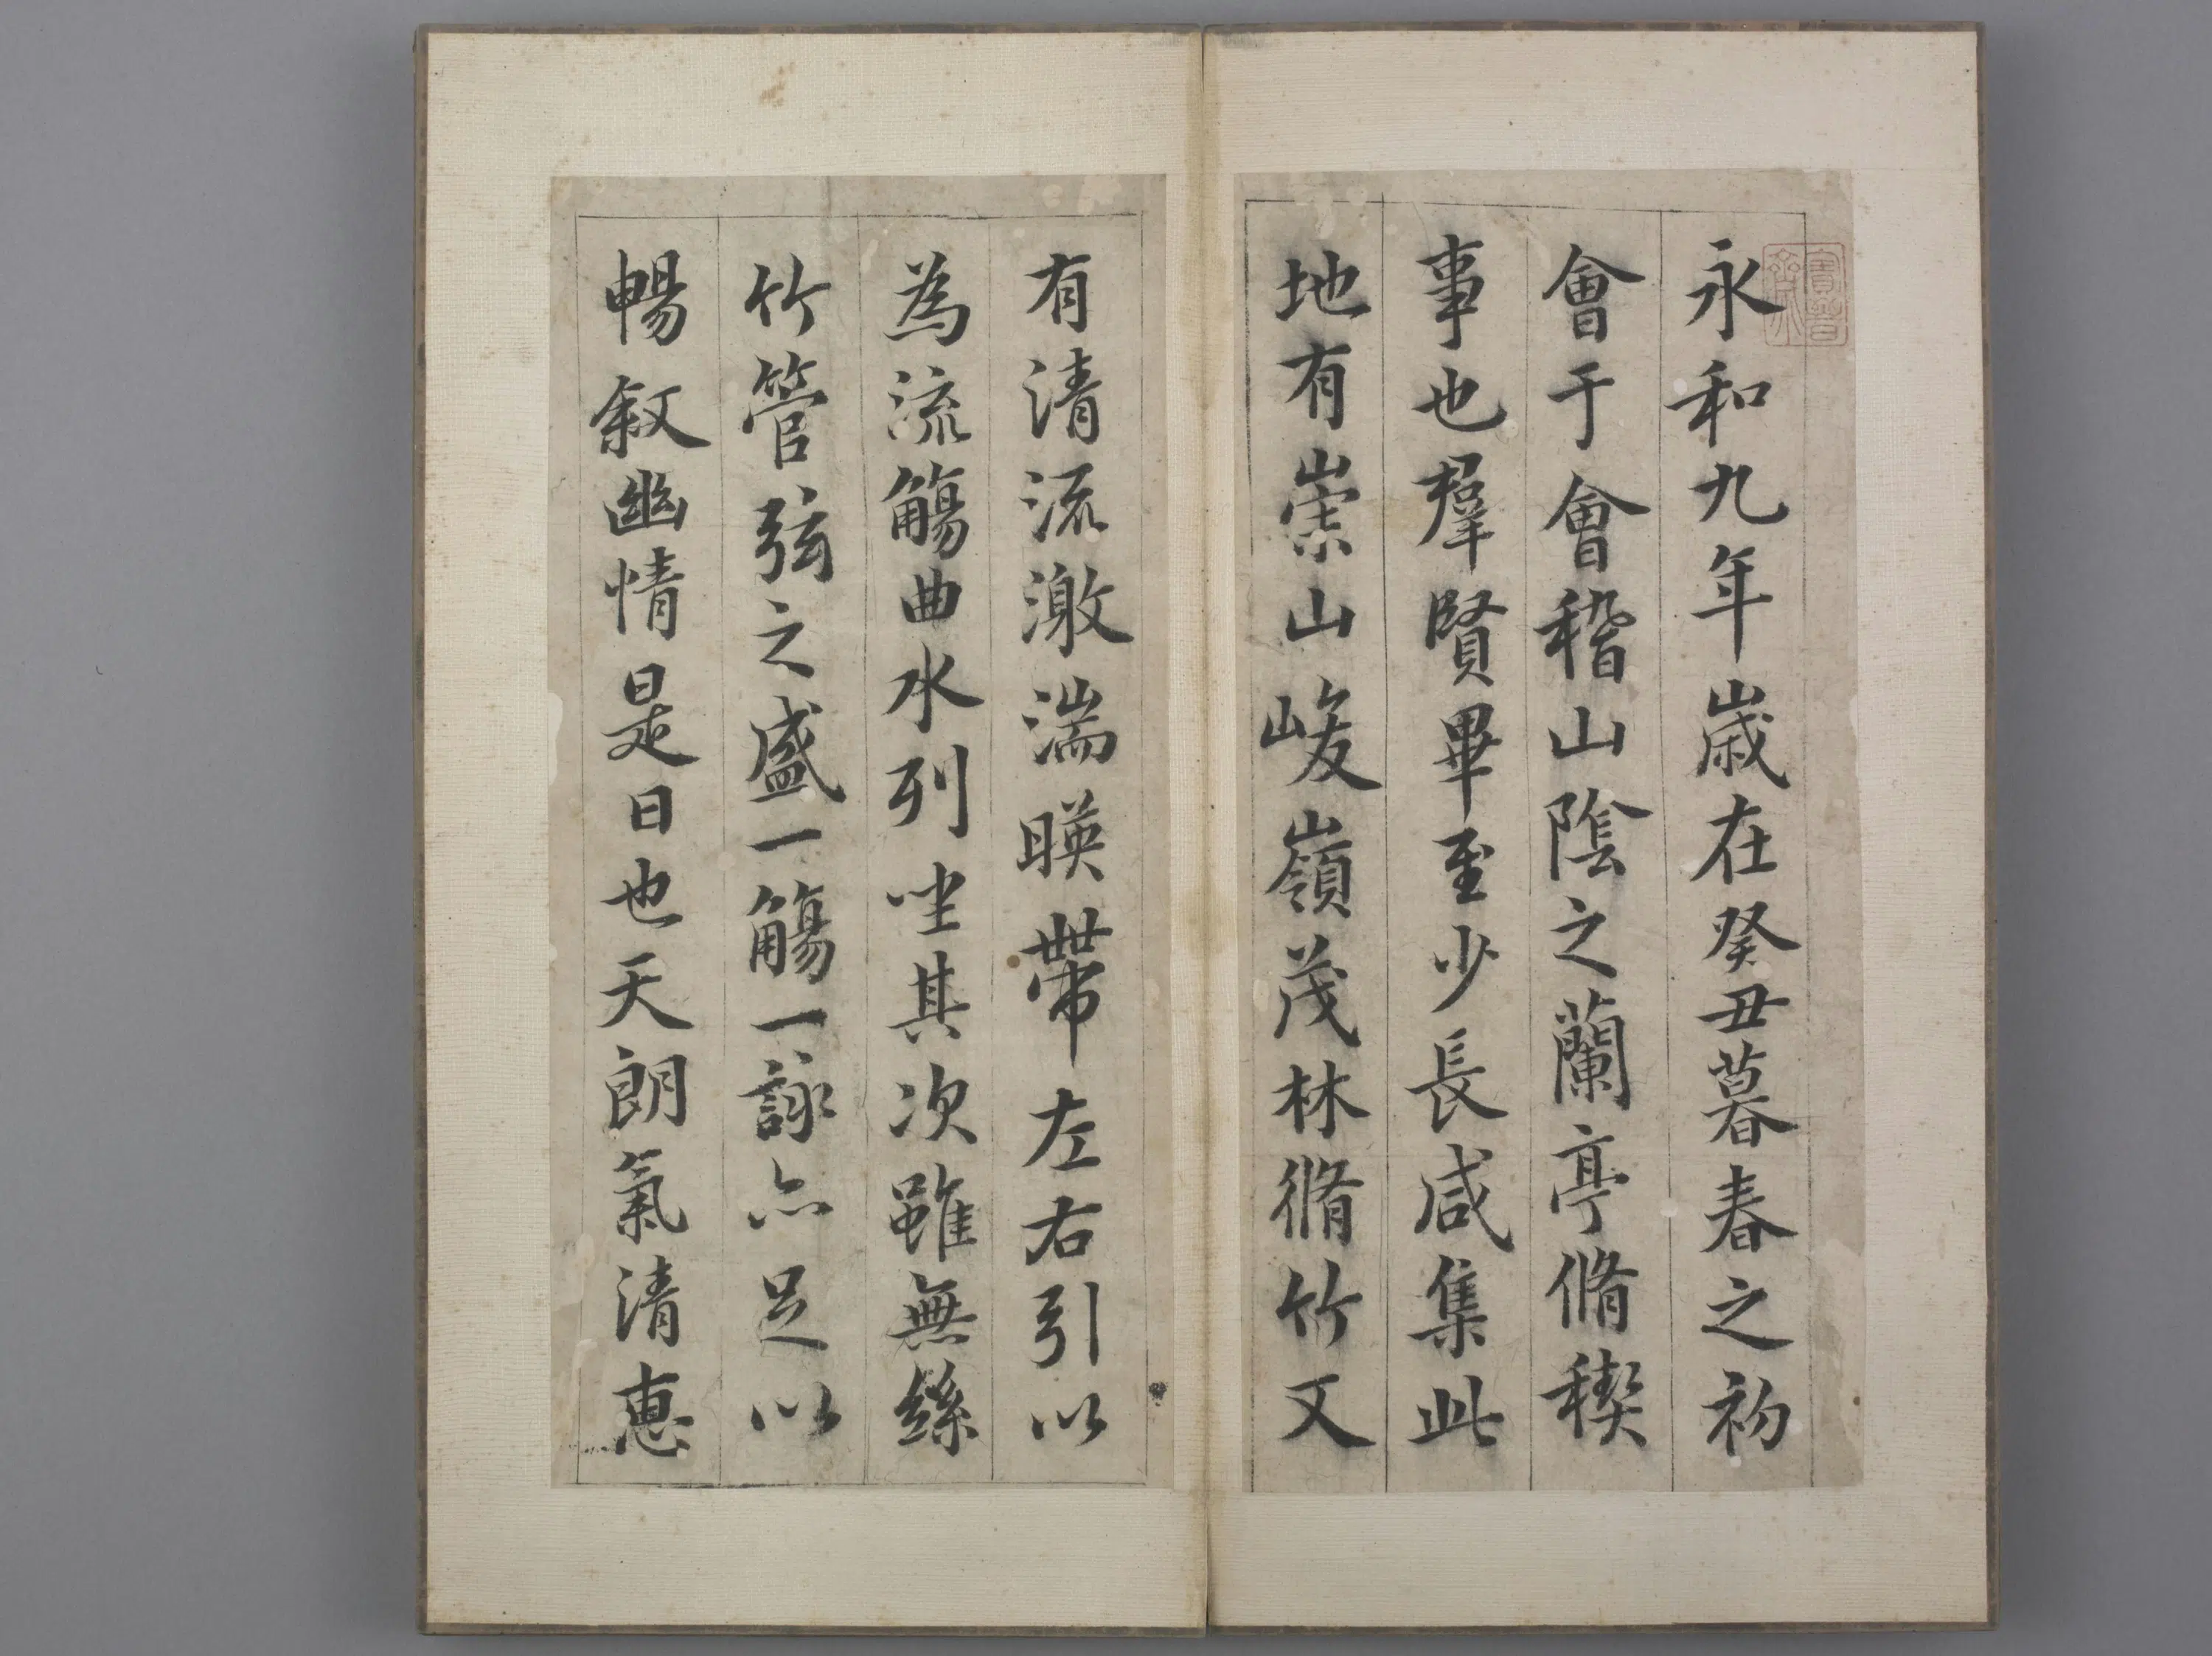 永和九年歲在癸丑暮春之初
會于會稽山陰之蘭亭脩稧
事也羣賢畢至少長咸集此
地有崇山峻嶺茂林脩竹又
有清流激湍暎帶左右引以
為流觴曲水列坐其次雖無絲
竹管弦之盛一觴一詠亦足以
暢叙幽情是日也天朗氣清惠